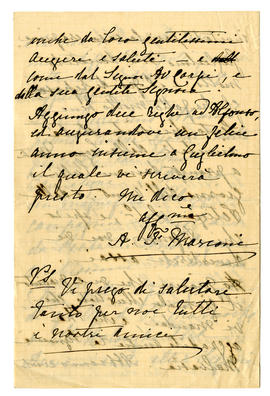 anche da loro gentilissimi
auguri e saluti — e dell
come dal Signor Carpi, e
della sua gentile Signora.
Aggiungo due righe ad Alfonso,
ed augurandovi un felice
anno insieme a Guglielmo
il quale vi scriverà
presto. Mi dico
aff ma
A Marconi
PS Vi prego di salutare
tanto per noi tutti
i nostri amici